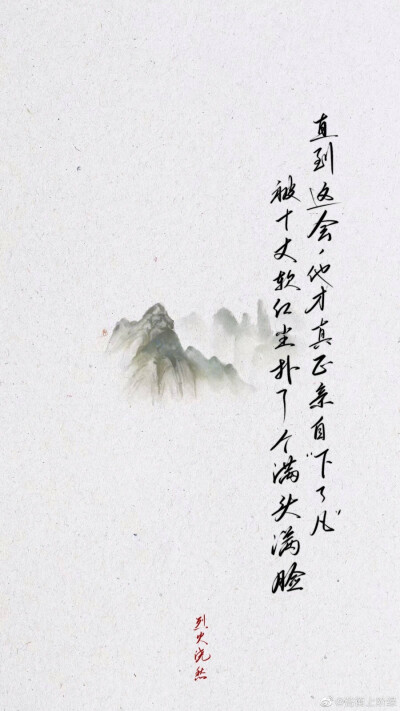 直到这会，他才真正亲自“下了凡”
被十丈软红尘扑了个满头满脸
烈火浇愁